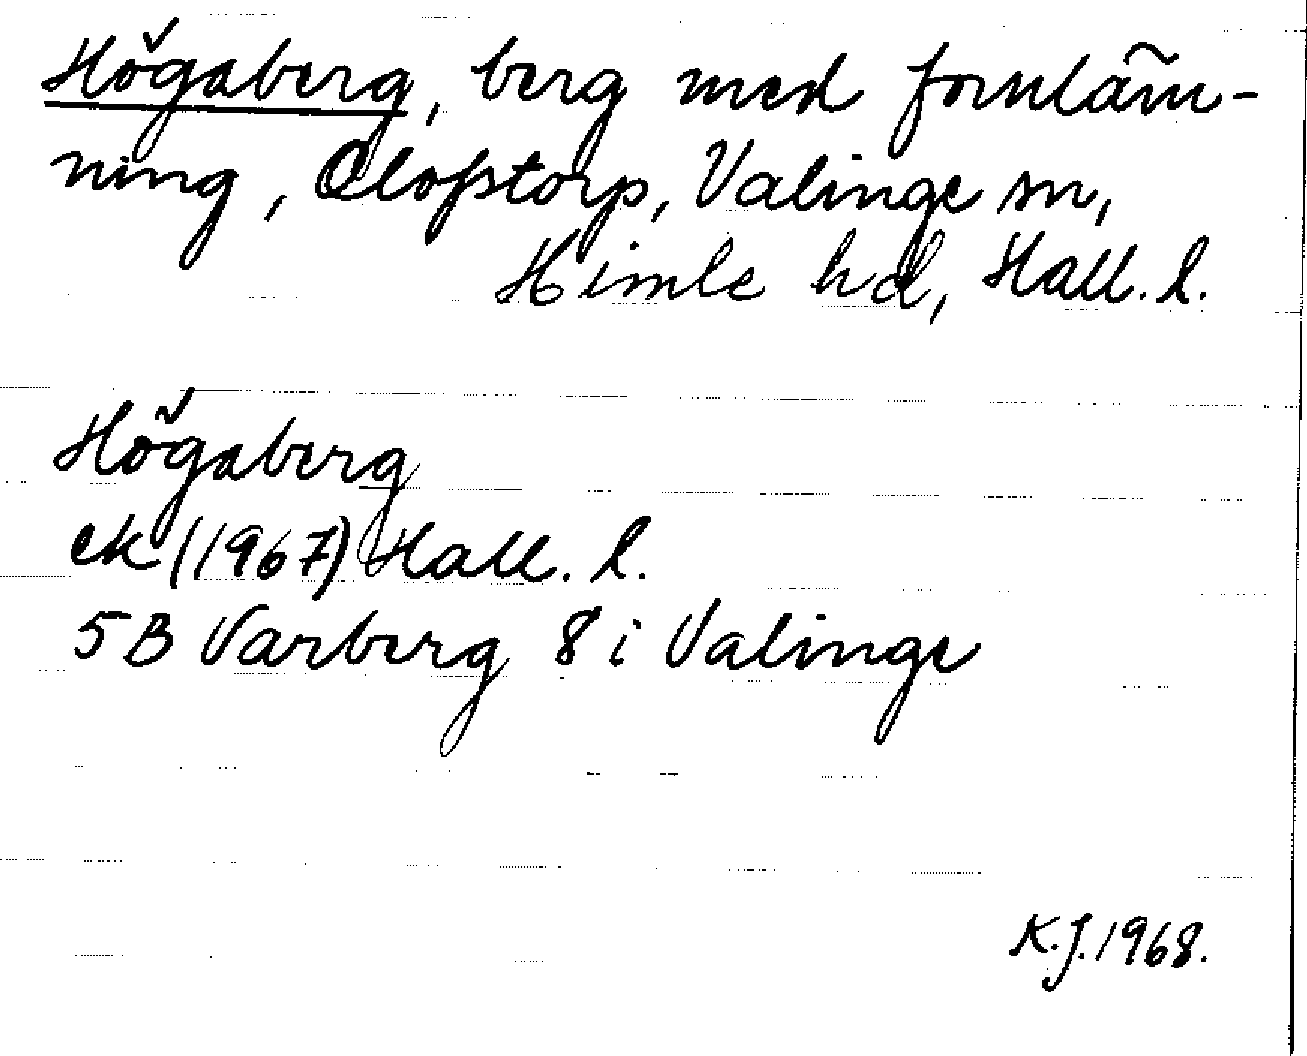 Högaberg, berg med fornläm-
ning, Olofstorp, Valinge sn,
Himle hd, Hall. l.
Högaberg
ek (1967) Hall. l.
5B Varberg 8i Valinge
K.J. 1968.